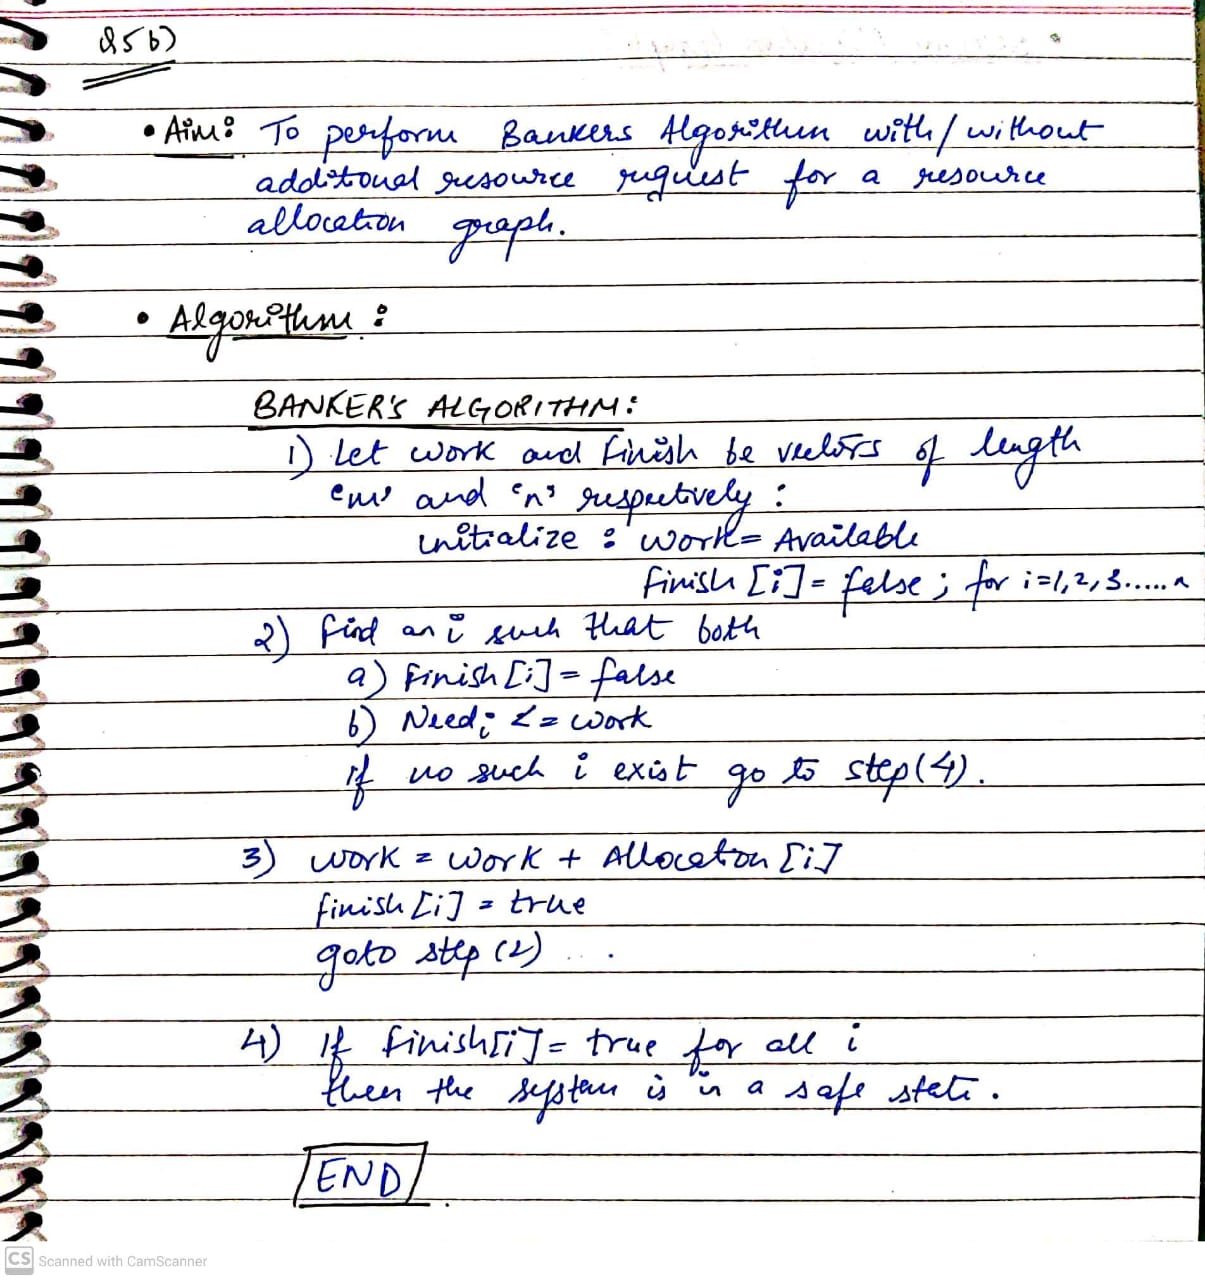 Q5 b)
• Aim: To perform Bankers Algorithm with/without
additonal resource request for a resource
allocation graph.
• Algorithm:
BANKER'S ALGORITHM:
1) Let work and finish be vectors of length
'm' and 'n' respectively:
initialize: work = Available
finish [i] = false; for i=1,2,3.....n
2) find an i such that both
a) Finish [i] = false
b) Needi <= work
if no such i exist go to step(4).
3) work = work + Allocaton [i]
finish [i] = true
goto step (2)
4) If finish[i] = true for all i
then the system is in a safe state.
END
CS Scanned with CamScanner